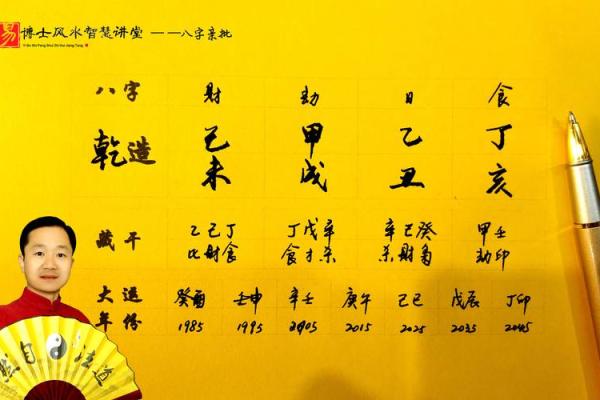 易 博士风水智慧讲堂 ——八字亲批
Yi Bo Shi Feng Shui Zhi Hui Jiang Tang
八字 財 劫 日 食
乾造 己 甲 乙 丁
未 戌 丑 亥
藏干 乙己丁 丁戊辛 辛己癸 甲壬
比財食 食才杀 杀財枭 劫印
大運 癸酉 壬申 辛壬 庚午 己巳 戊辰 丁卯
年份 1985 1995 2005 2015 2025 2035 2045
然自法道